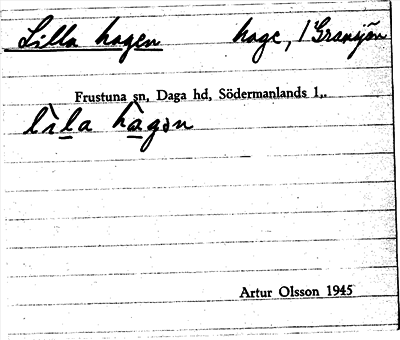 Lilla hagen hage, 1 Gransjön
Frustuna sn, Daga hd, Södermanlands l,.
lìla hàgən
Artur Olsson 1945